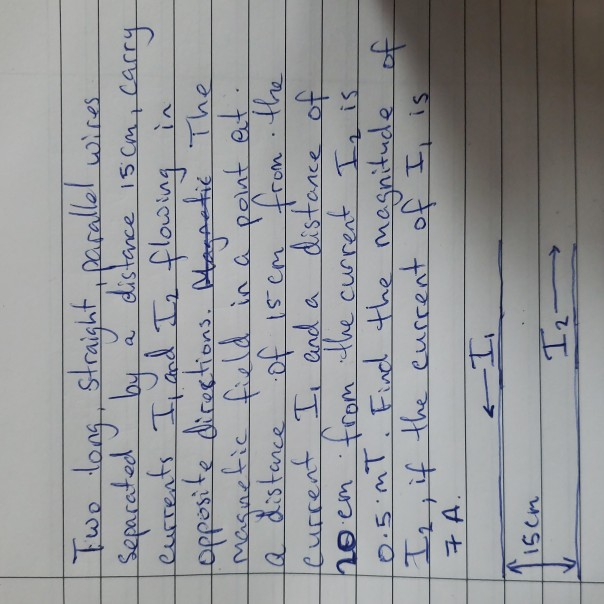 Two long, straight, parallel wires
separated by a distance 15 cm, carry
currents I1 and I2 flowing in
opposite directions. Magnetic The
magnetic field in a point at
a distance of 15 cm from the
current I1 and a distance of
20 cm from the current I2 is
0.5 mT. Find the magnitude of
I2, if the current of I1 is
7 A.
←I1
15cm
I2→